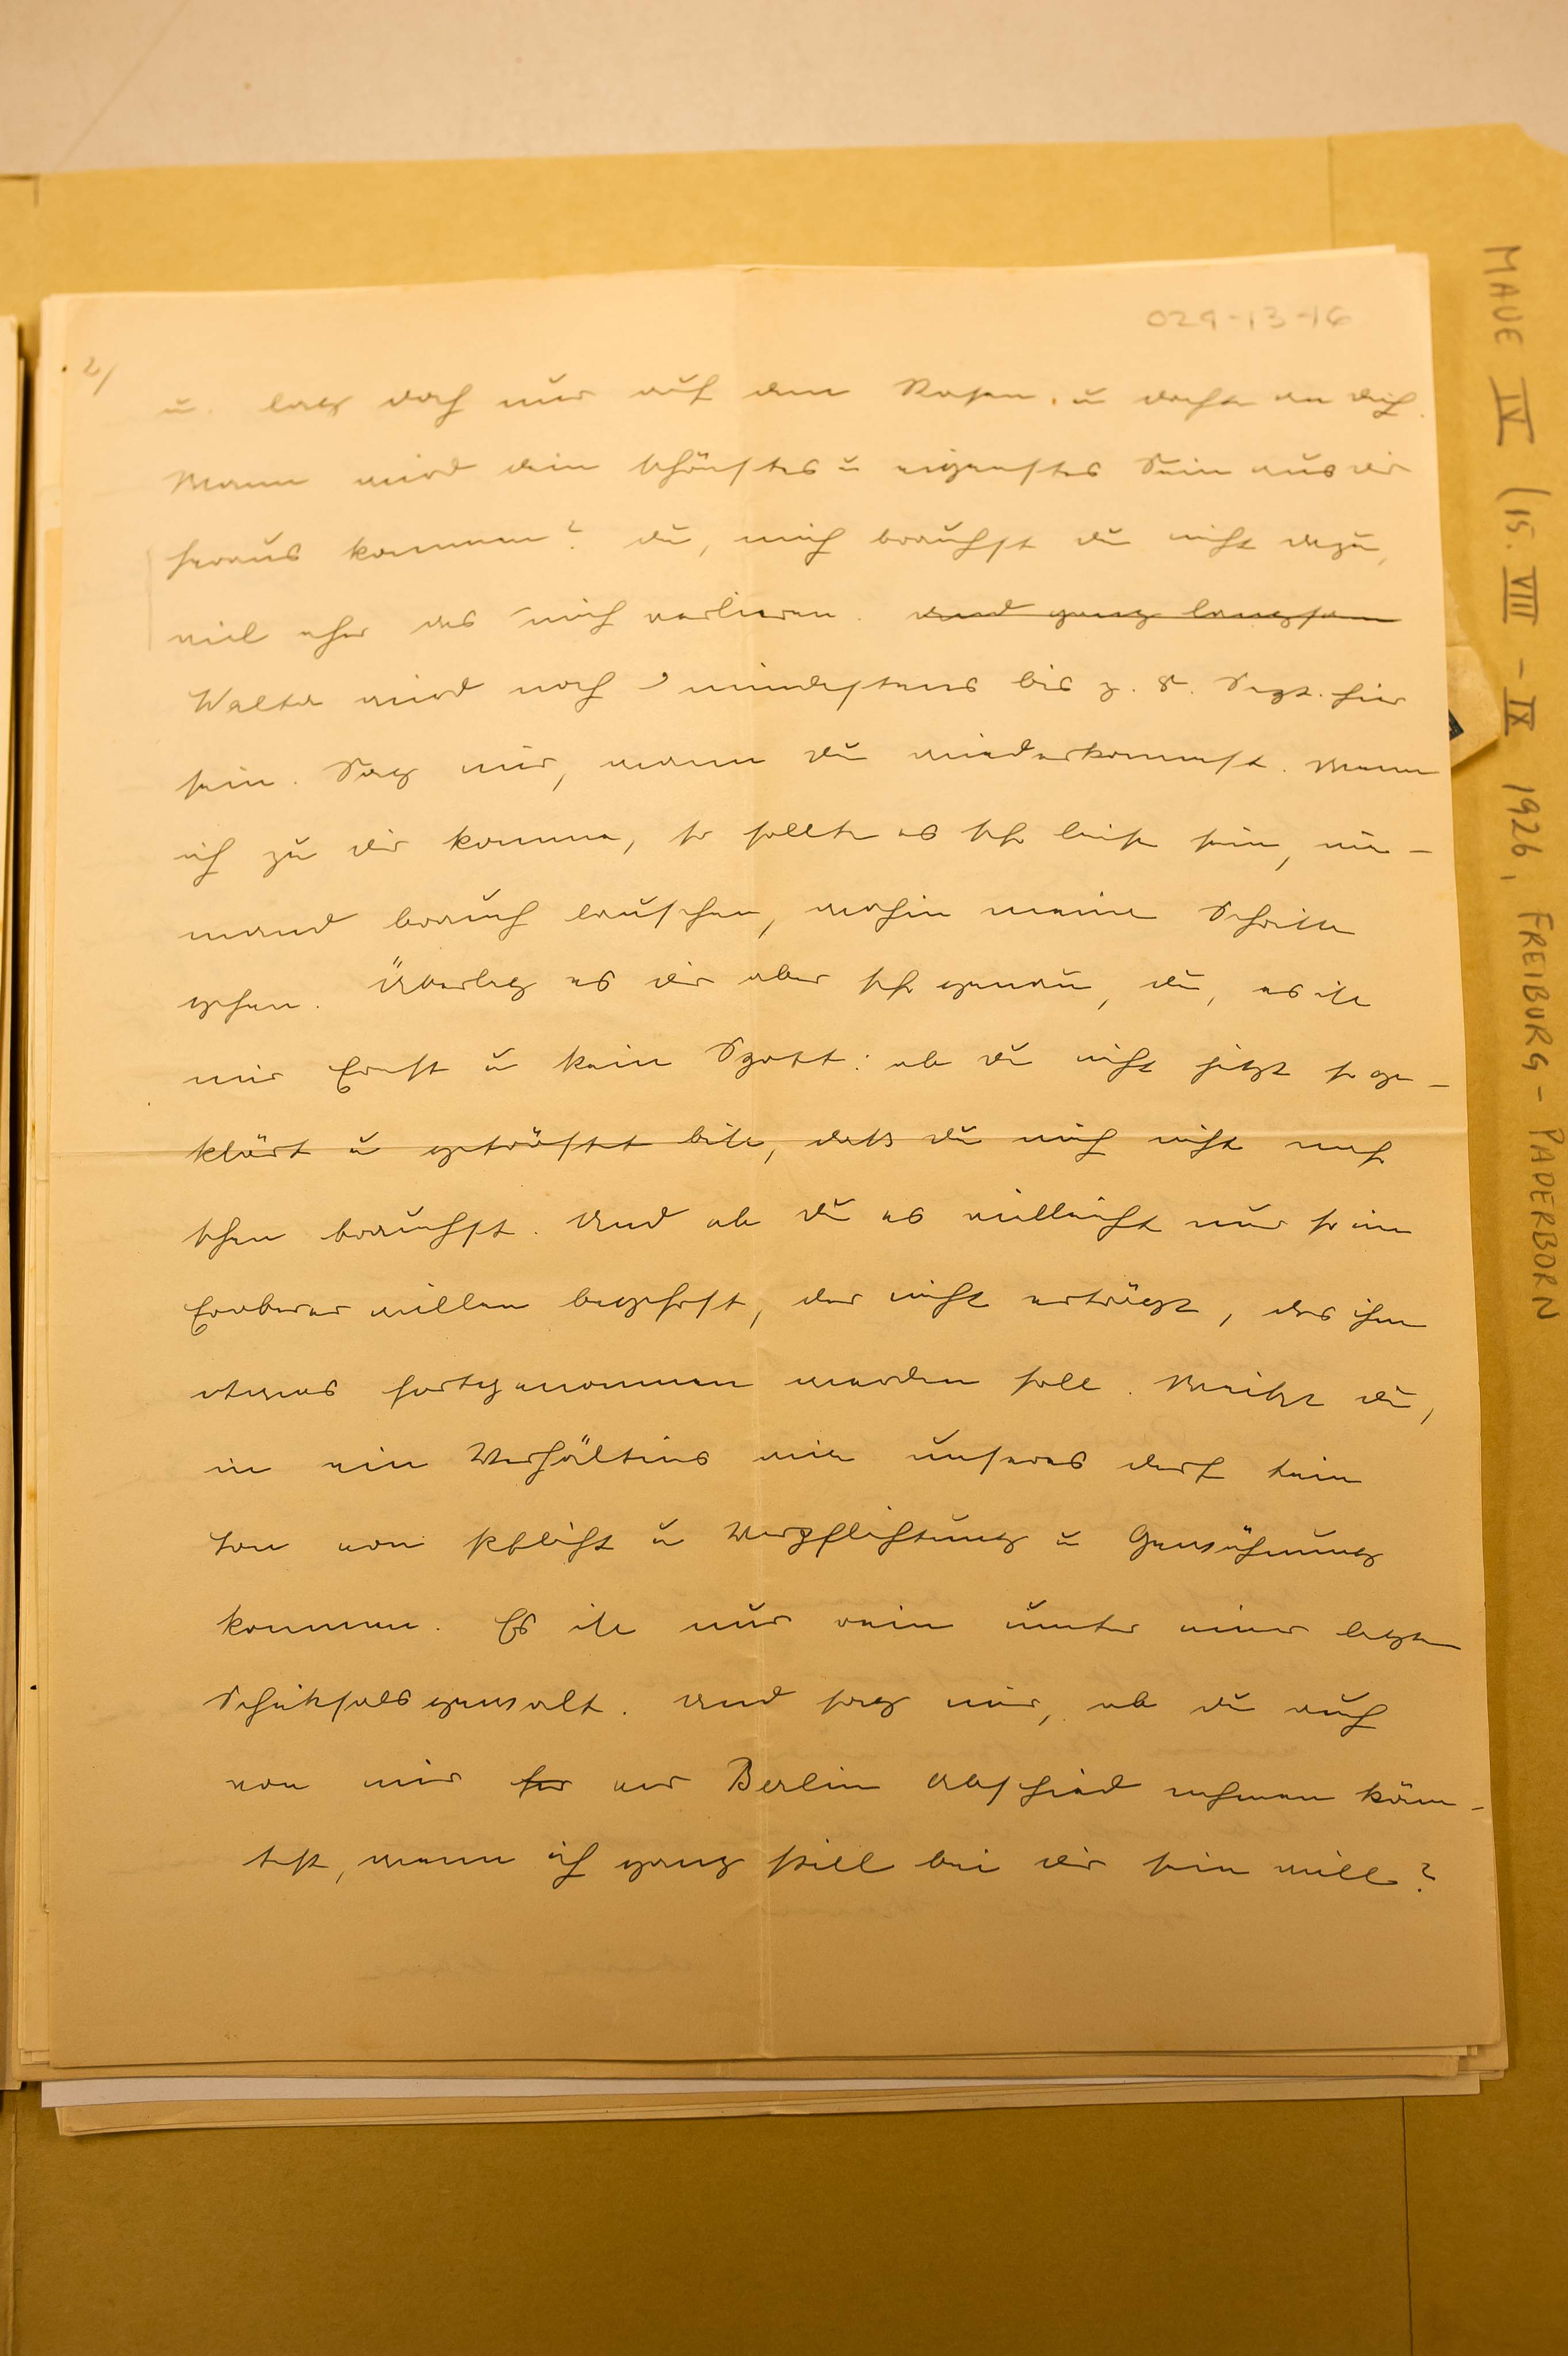 029-13-16
2/
u. lag doch nur auf dem Rasen. u dachte an dich.
Wann wird dein schönstes u eigenstes Sein aus dir
heraus kommen? du, mich brauchst du nicht dazu,
viel eher das mich verlieren. Und ganz langsam
Walter wird noch mindestens bis z. 8. Sept. hier
sein. Sag mir, wann du wiederkommst. Wenn
ich zu dir komme, so sollte es sehr leise sein, nie-
mand brauch lauschen, wohin meine Schritte
gehen. Überleg es dir aber sehr genau, du, es ist
mir Ernst u kein Spott: ob du nicht jetzt so ge-
klärt u getröstet bist, dass du mich nicht mehr
sehen brauchst. Und ob du es vielleicht nur so im
Eroberer willen begehrst, der nicht erträgt, das ihm
etwas fortgenommen werden soll. Weisst du,
in ein Verhältnis wie unseres darf kein
Ton von Pflicht u Verpflichtung u Gewöhnung
kommen. Es ist nur rein unter einer letzten
Schicksalsgewalt. Und sag mir, ob du auch
von mir vor Berlin Abschied nehmen könn-
test, wenn ich ganz still bei dir sein will?
MAUE IV (15. VIII - IX 1926, FREIBURG - PADERBORN